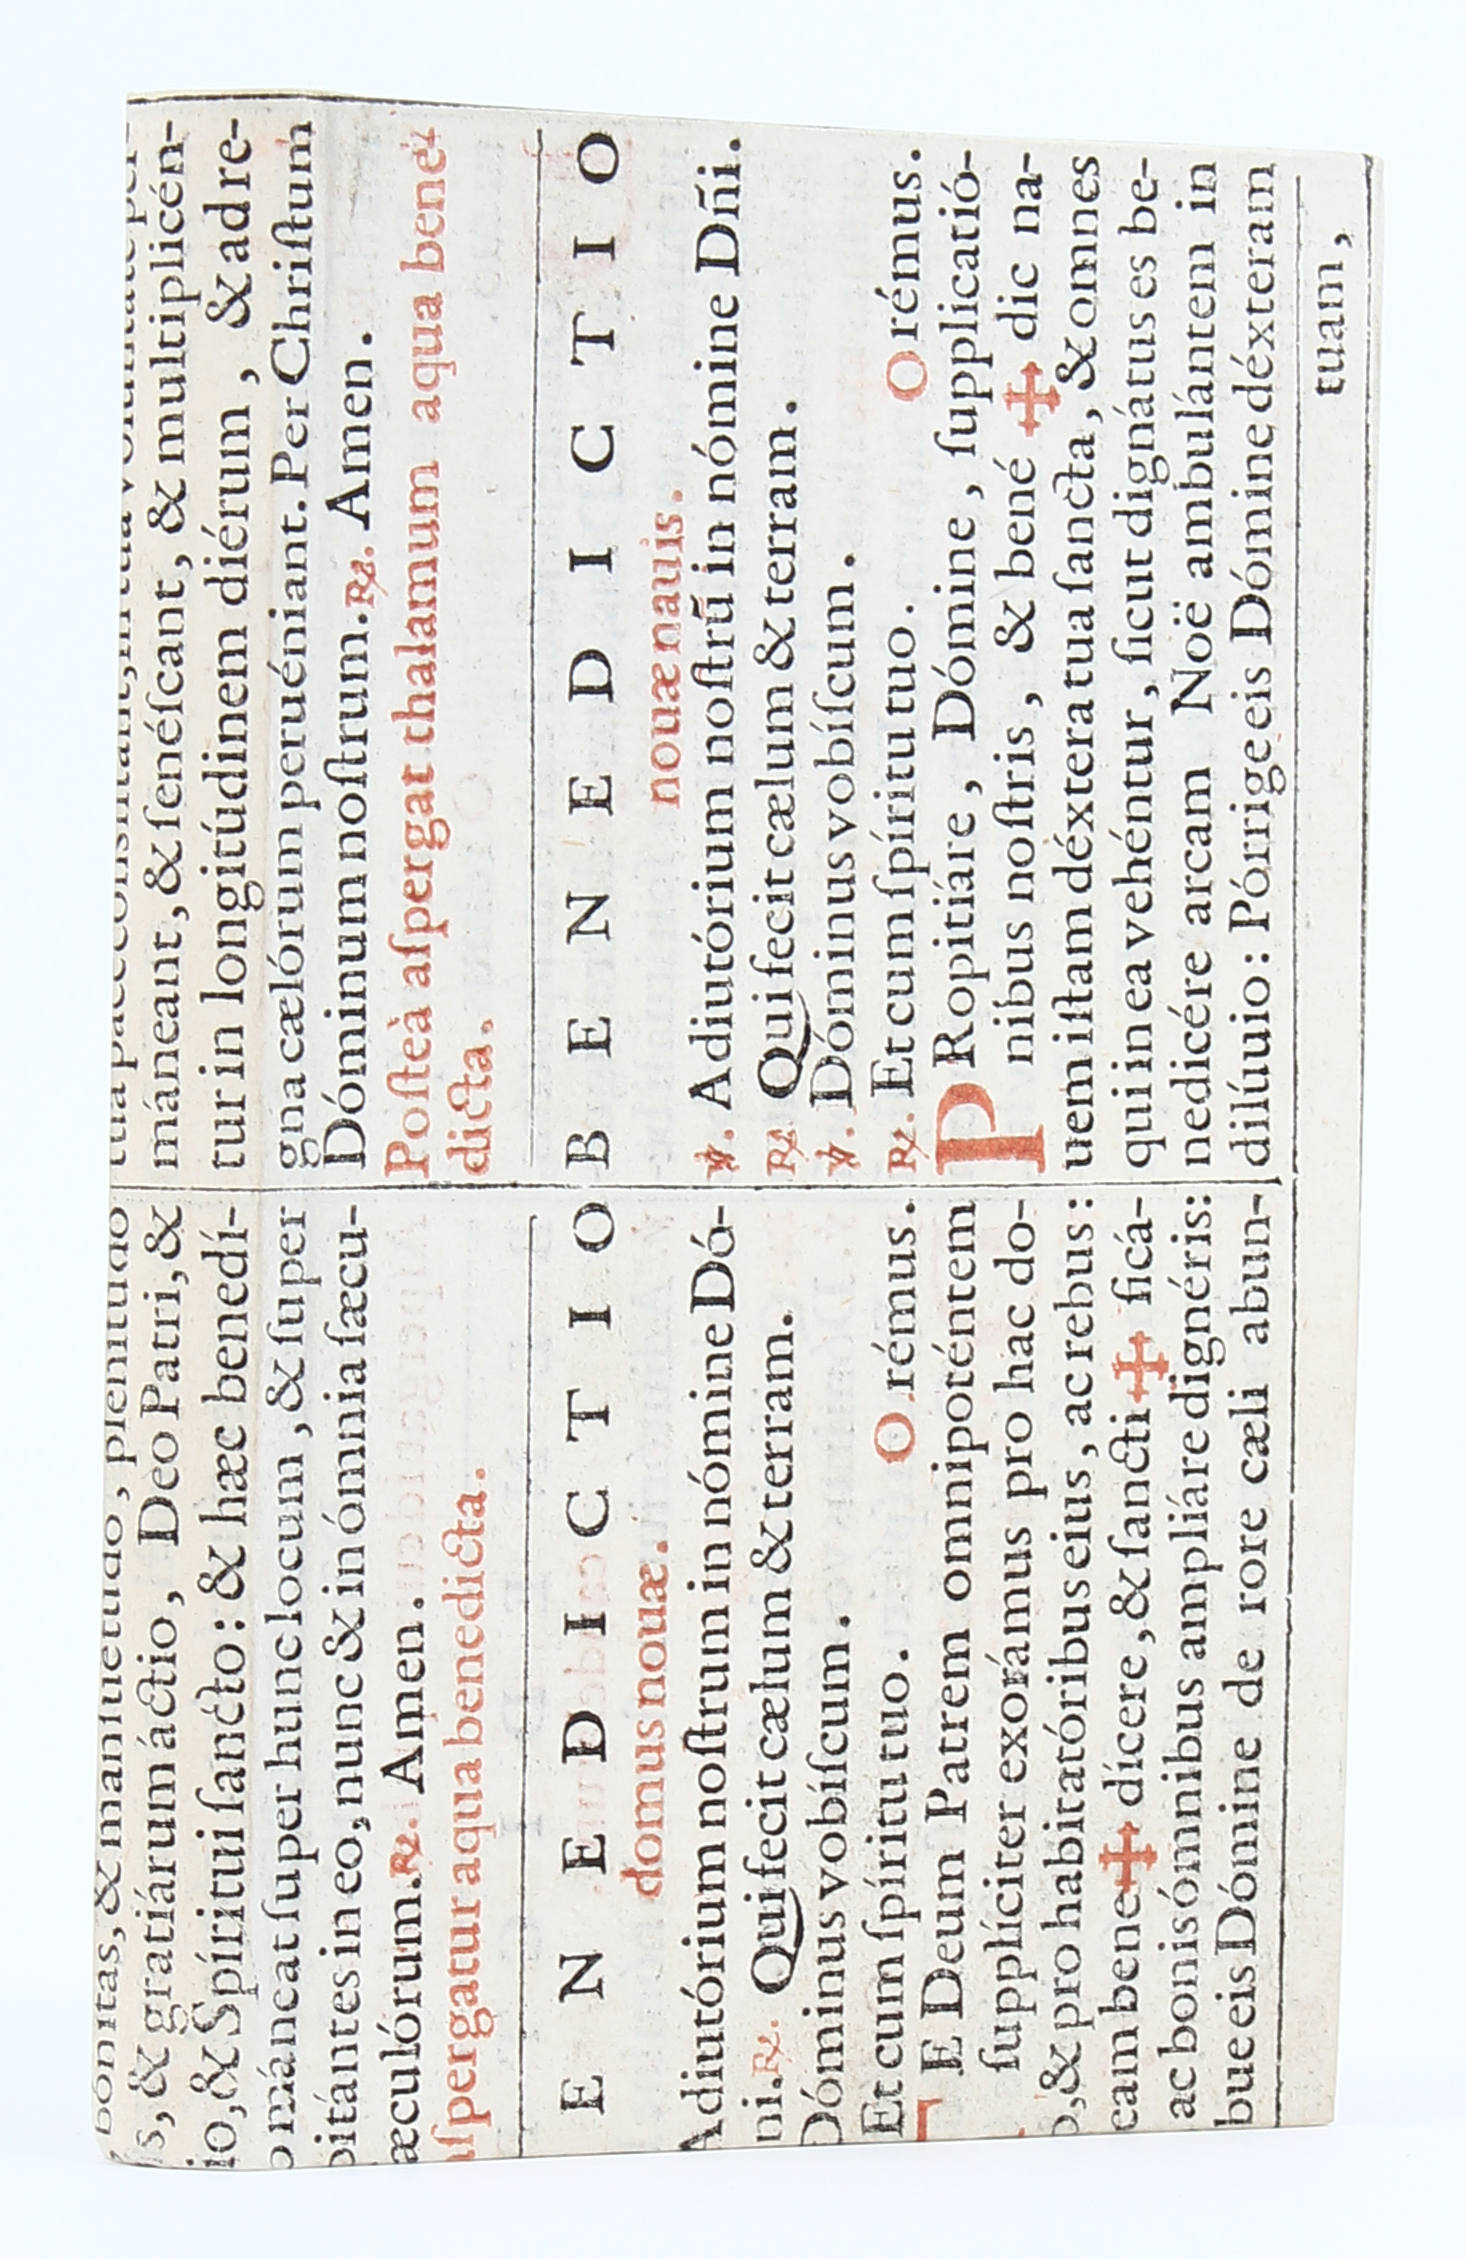 bonitas, & mansuetudo, plenitudo
s, & gratiárum áctio, Deo Patri, &
io, & Spíritui ſancto: & hæc benedí-
o máneat ſuper hunc locum, & ſuper
bitántes in eo, nunc & in ómnia ſæcu-
æculórum. ℟. Amen.
aſpergatur aqua benedicta.
ENEDICTIO
domus nouæ.
Adiutórium noſtrum in nómine Dó-
ni. ℟. Qui fecit cælum & terram.
Dóminus vobíſcum.
Et cum ſpíritu tuo. Orémus.
TE Deum Patrem omnipoténtem
ſupplíciter exorámus pro hac do-
o, & pro habitatóribus eius, ac rebus:
cam bene ✠ dícere, & ſancti ✠ ficá-
ac bonis ómnibus ampliáre dignéris:
bue eis Dómine de rore cæli abun-
máneant, & ſenéſcant, & multiplicén-
tur in longitúdinem diérum, & ad re-
gna cælórum peruéniant. Per Chriſtum
Dóminum noſtrum. ℟. Amen.
Poſteà aſpergat thalamum aqua bene-
dicta.
BENEDICTIO
nouæ nauis.
℣. Adiutórium noſtrũ in nómine Dñi.
℟. Qui fecit cælum & terram.
℣. Dóminus vobíſcum.
℟. Et cum ſpíritu tuo. Orémus.
PRopitiáre, Dómine, ſupplicatió-
nibus noſtris, & bené ✠ dic na-
uem iſtam déxtera tua ſancta, & omnes
qui in ea vehéntur, ſicut dignátus es be-
nedícére arcam Noë ambulántem in
dilúuio: Pórrige eis Dómine déxteram
tuam,